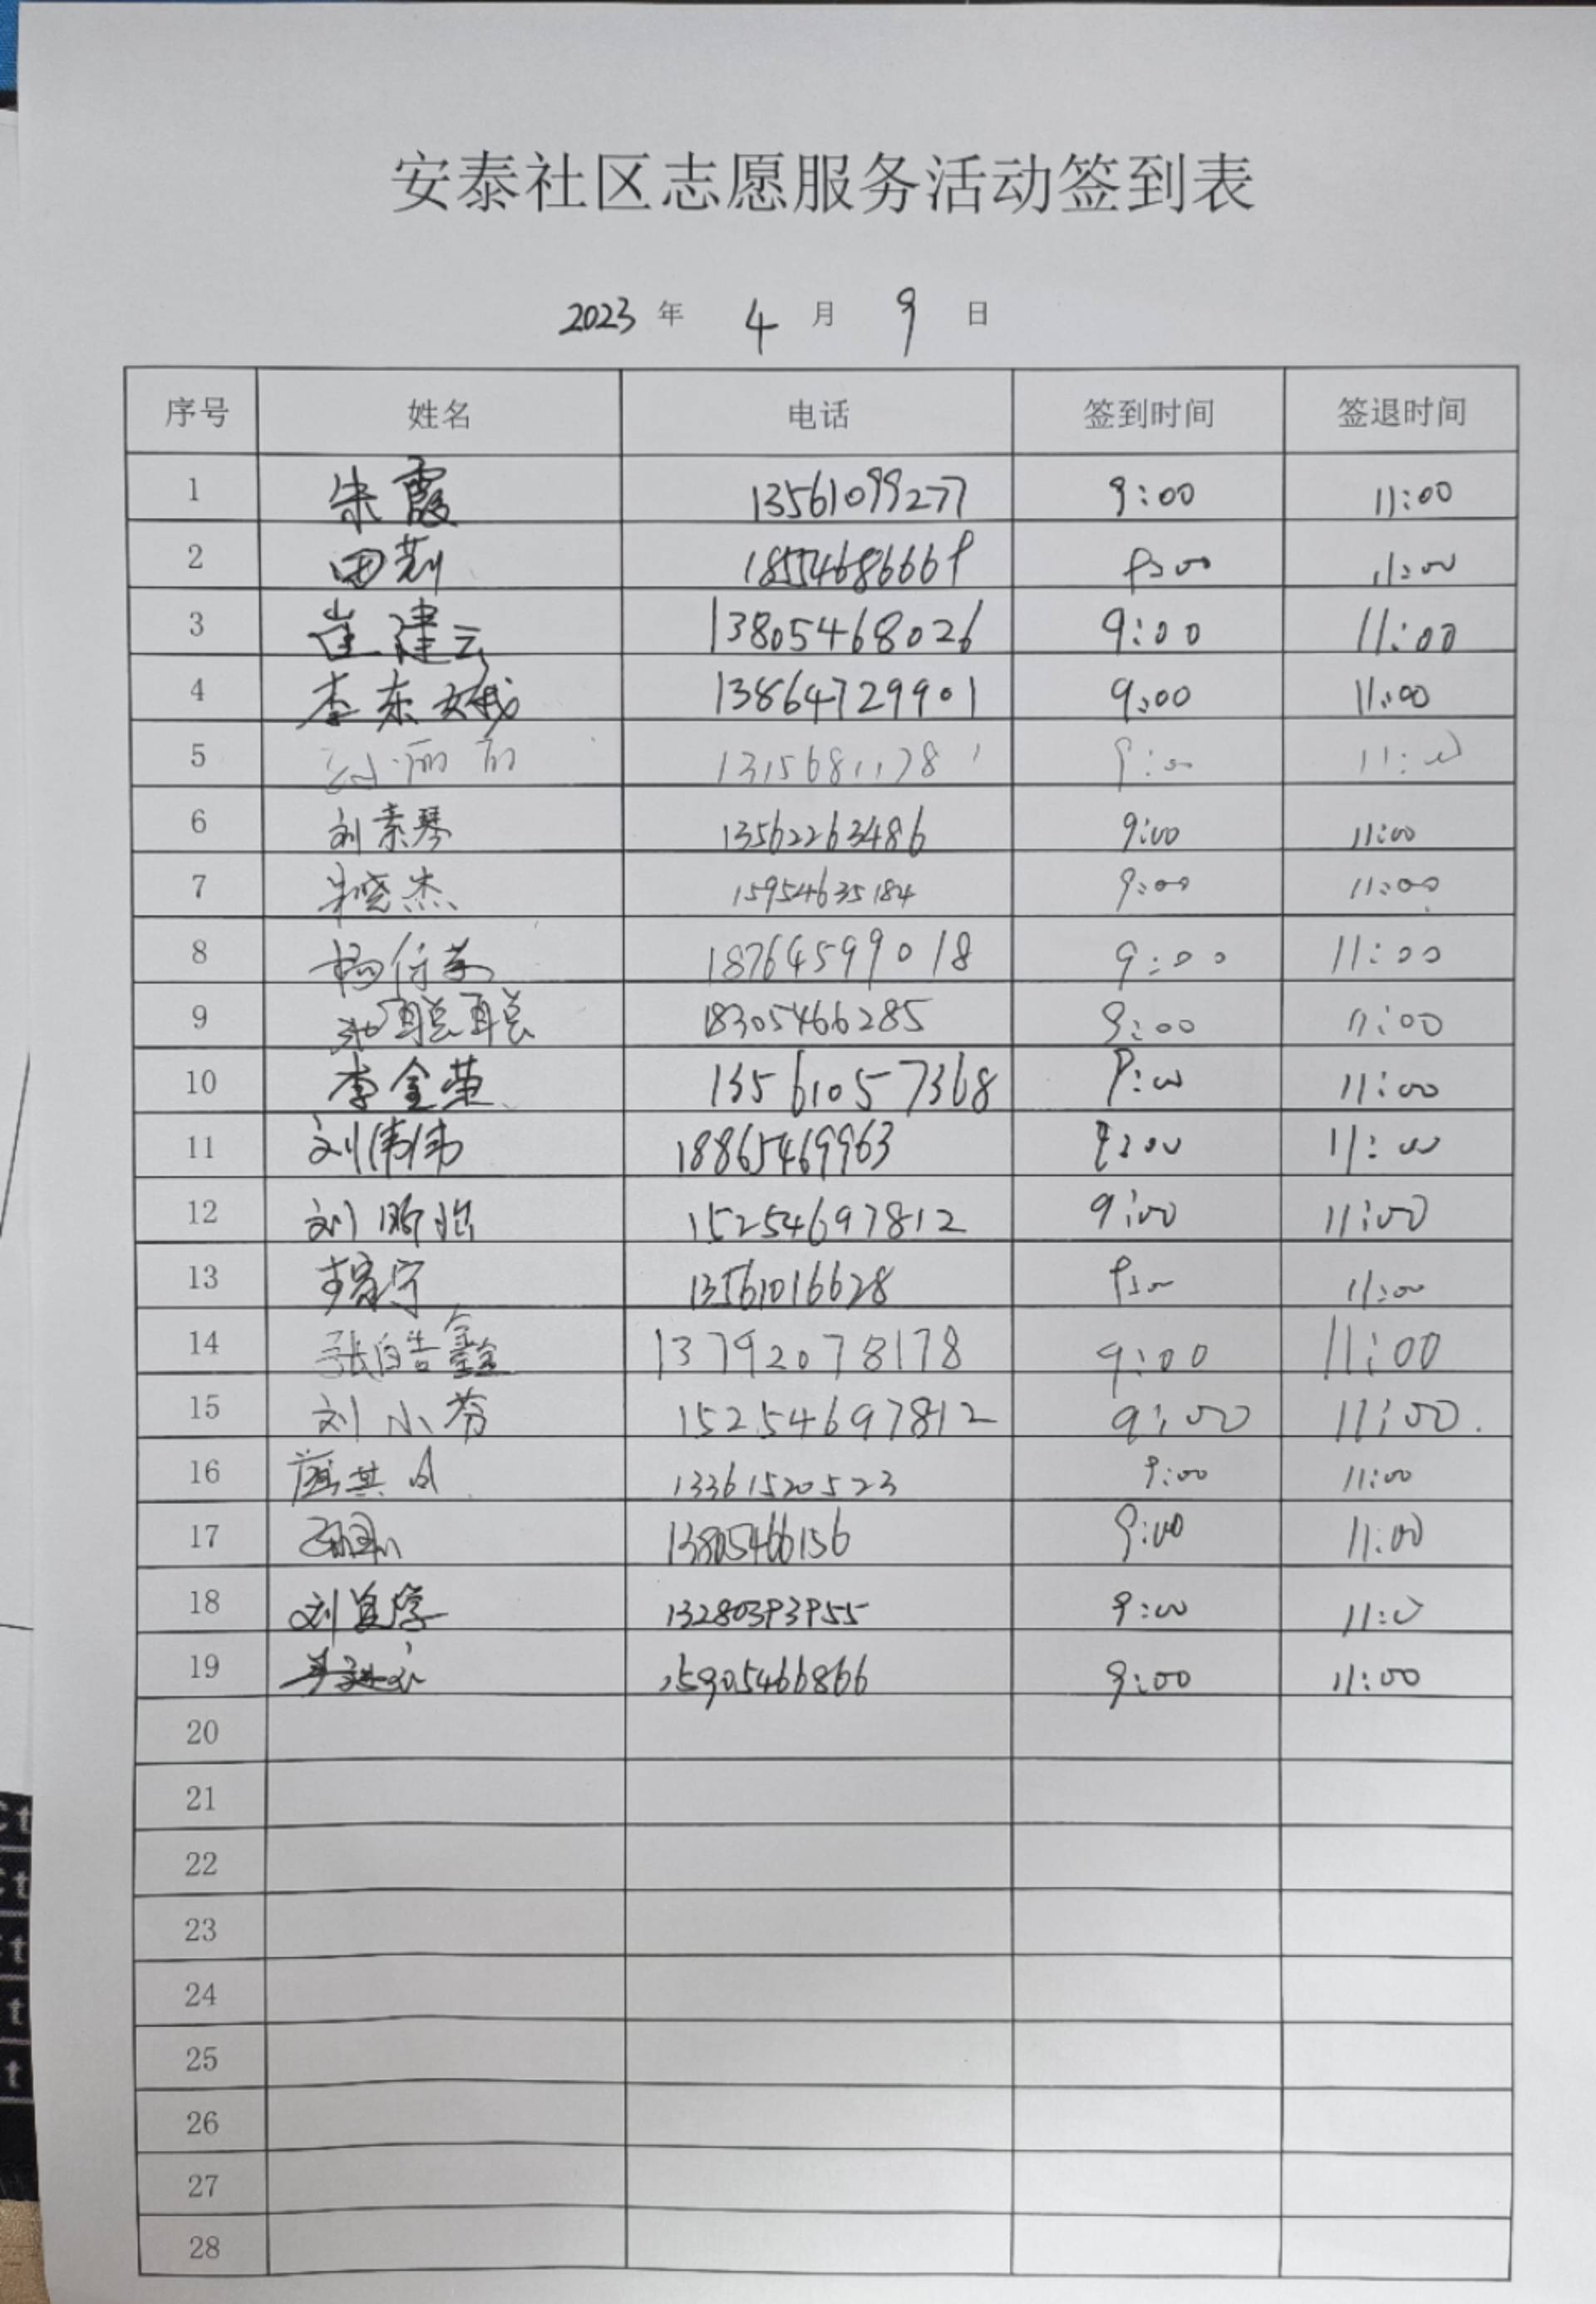 安泰社区志愿服务活动签到表
2023 年 4 月 9 日
序号 姓名 电话 签到时间 签退时间
1 朱霞 13561099277 9:00 11:00
2 田莉 18554686669 9:00 11:00
3 崔建云 13805468026 9:00 11:00
4 李东娥 13864729901 9:00 11:00
5 丽丽 13156811781 9:00 11:00
6 刘素琴 13562263486 9:00 11:00
7 朱晓杰 15954635184 9:00 11:00
8 杨 18764599018 9:00 11:00
9 池聪聪 18305466285 9:00 11:00
10 李金荣 13561057368 9:00 11:00
11 刘伟伟 18865469963 9:00 11:00
12 刘昕怡 15254697812 9:00 11:00
13 宁 13561016628 9:00 11:00
14 张皓鑫 13792078178 9:00 11:00
15 刘小芬 15254697812 9:00 11:00
16 其 13361520523 9:00 11:00
17 13805466156 9:00 11:00
18 刘 13280393955 9:00 11:00
19 15905466866 9:00 11:00
20
21
22
23
24
25
26
27
28
Ct
Ct
Ct
t
t